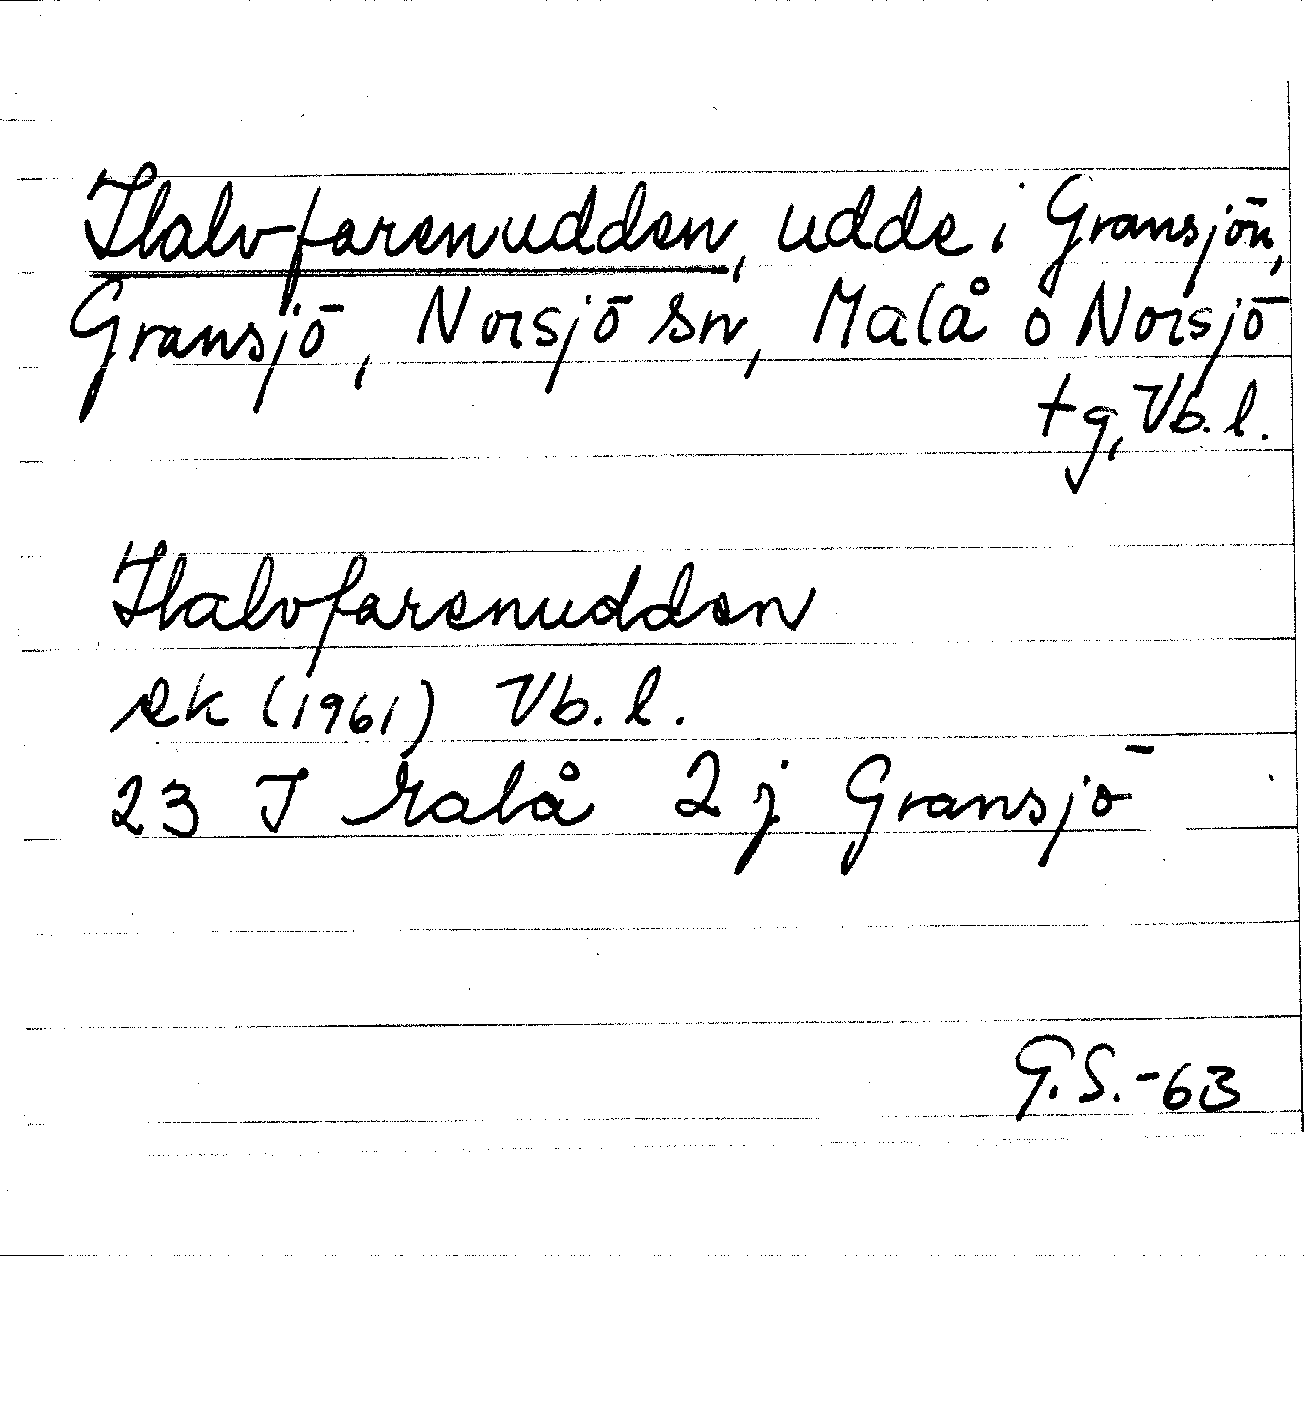 Halvfarenudden, udde i Gransjön,
Gransjö, Norsjö sn, Malå o Norsjö
tg, Vb. l.
Halvfarenudden
ek (1961) Vb. l.
23 I Malå 2 j Gransjö
G.S.-63